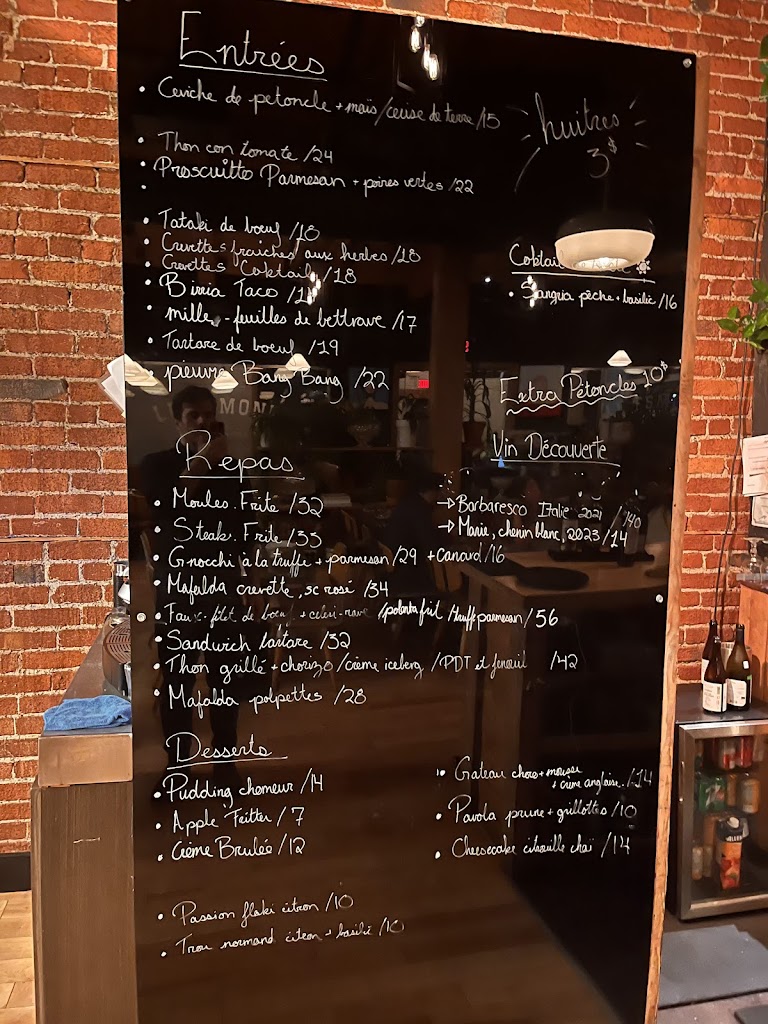 Entrées
• Ceviche de petoncle + maïs/cerise de terre/15
huitres
3$
• Thon con tomate /24
• Proscuitto Parmesan + poires vertes /22
• Tataki de boeuf /18
• Crevettes fraiches aux herbes /18
• Crevettes Coktail /18
• Birria Taco
• mille - feuilles de bettrave /17
• Tartare de boeuf /19
• pieuvre Bang Bang /22
Coktail
• Sangria pêche + basilic /16
Extra Pétoncles 10$
Vin Découverte
→ Barbaresco Italie 2021 /140
→ Marie, chenin blanc, 2023 /14
Repas
• Moules. Frite /32
• Steak. Frite /33
• Gnocchi à la truffe + parmesan /29 + canard /16
• Mafalda crevette, sc rosé /34
• Faux-filet de boeuf + celeri-rave /polenta frit /truffe parmesan /56
• Sandwich tartare /32
• Thon grillé + chorizo /crème iceberg /PDT et fenouil /42
• Mafalda polpettes /28
Desserts
• Pudding chomeur /14
• Apple Fritter /7
• Crème Brulée /12
• Gateau choco + mousse
+ crème anglaise /14
• Pavola prune + grillottes /10
• Cheesecake citrouille chaï /14
• Passion flaki citron /10
• Trou normand citron + basilic /10